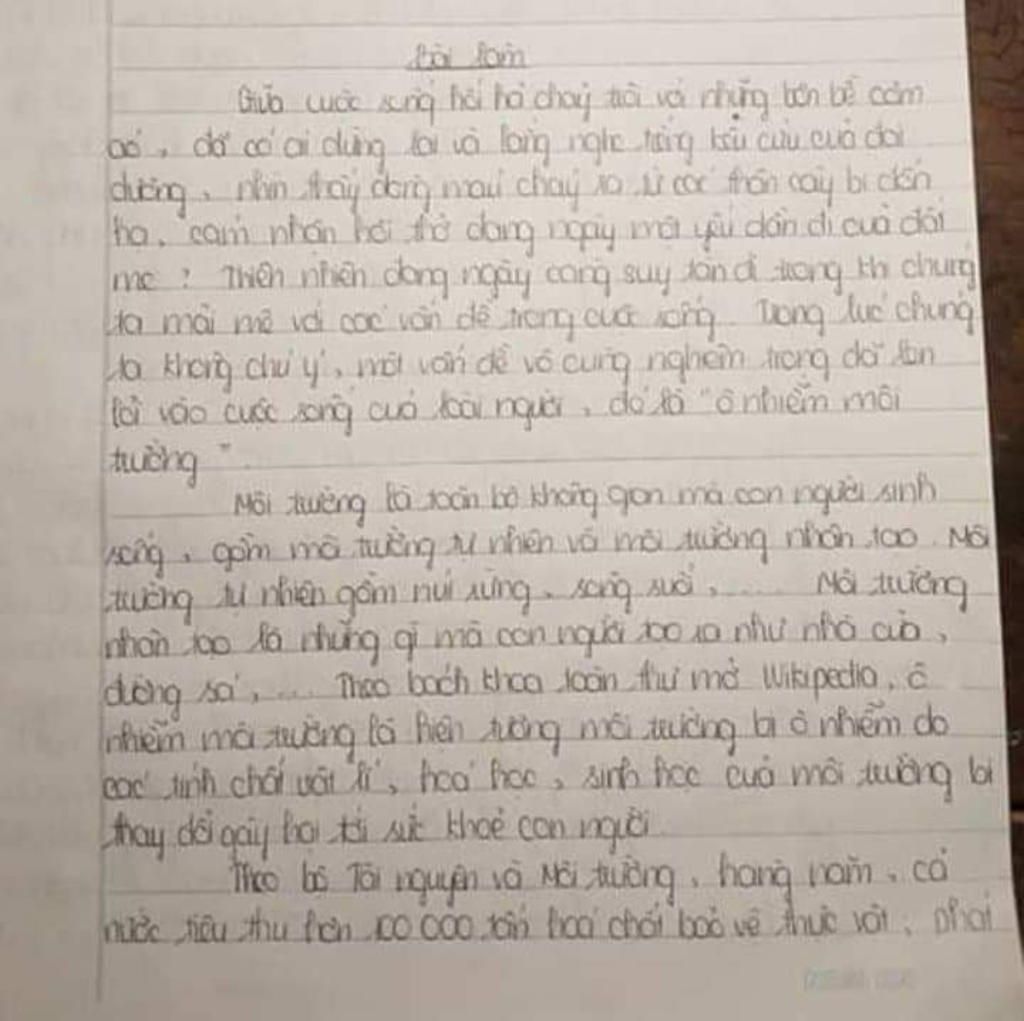 Bài làm
Giữa cuộc sống hối hả chạy trôi với những bộn bề cơm
áo, đã có ai dừng lại và lắng nghe tiếng kêu cứu của đại
dương, nhìn thấy dòng máu chảy ra từ các thân cây bị đốn
hạ, cảm nhận hơi thở đang ngày một yếu dần đi của đất
mẹ ? Thiên nhiên đang ngày càng suy tàn đi trong khi chúng
ta mải mê với các vấn đề trong cuộc sống. Trong lúc chúng
ta không chú ý, một vấn đề vô cùng nghiêm trọng đã len
lỏi vào cuộc sống của loài người, đó là "ô nhiễm môi
trường".
Môi trường là toàn bộ không gian mà con người sinh
sống, gồm môi trường tự nhiên và môi trường nhân tạo. Môi
trường tự nhiên gồm núi rừng, sông suối, ..... Môi trường
nhân tạo là những gì mà con người tạo ra như nhà cửa,
đường sá, ... Theo bách khoa toàn thư mở Wikipedia, ô
nhiễm môi trường là hiện tượng môi trường bị ô nhiễm do
các tính chất vật lí, hoá học, sinh học của môi trường bị
thay đổi gây hại tới sức khoẻ con người.
Theo bộ Tài nguyên và Môi trường, hàng năm, cả
nước tiêu thụ hơn 100 000 tấn hoá chất bảo vệ thực vật, phát